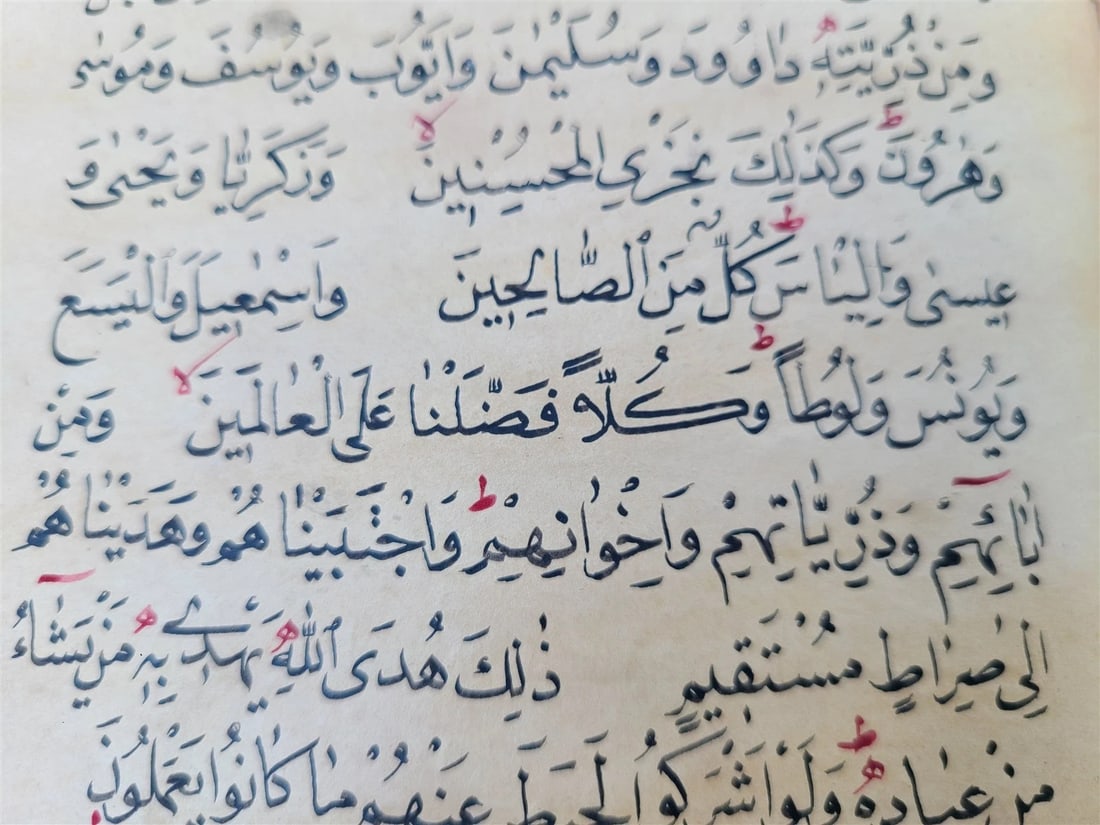 وَمِنْ ذُرِّيَّتِهٖ دَاوُودَ وَسُلَيْمٰنَ وَاَيُّوبَ وَيُوسُفَ وَمُوسٰى
وَهٰرُونَ ط وَكَذٰلِكَ نَجْزِي الْمُحْسِنِينَ لا وَزَكَرِيَّا وَيَحْيٰى وَ
عِيسٰى وَاِلْيَاسَ ط كُلٌّ مِنَ الصَّالِحِينَ وَاِسْمٰعِيلَ وَالْيَسَعَ
وَيُونُسَ وَلُوطًا ط وَكُلًّا فَضَّلْنَا عَلَى الْعَالَمِينَ لا وَمِنْ
اٰبَائِهِمْ وَذُرِّيَّاتِهِمْ وَاِخْوَانِهِمْ ط وَاجْتَبَيْنَاهُمْ وَهَدَيْنَاهُمْ
اِلٰى صِرَاطٍ مُسْتَقِيمٍ ذٰلِكَ هُدَى اللّٰهِ يَهْدِي بِهٖ مَنْ يَشَاءُ
مِنْ عِبَادِهٖ ط وَلَوْ اَشْرَكُوا لَحَبِطَ عَنْهُمْ مَا كَانُوا يَعْمَلُونَ